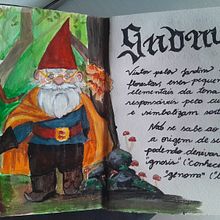 Gnom
Vistos pelos jardins
florestas, esses pequen
elementais da terra
responsáveis pelo c
e simbolizam sort
Não se sabe ao
a origem de se
podendo derivar
"gnosis" ("conhec
"genomo" ("